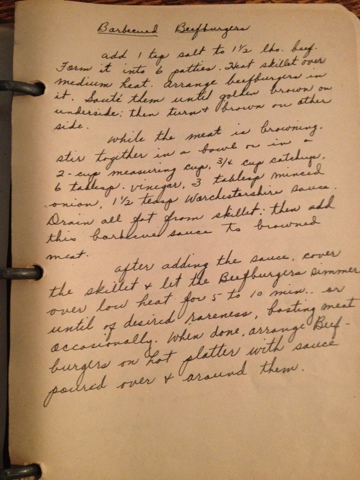 Barbecued Beefburgers
add 1 tsp salt to 1 1/2 lbs. beef.
Form it into 6 patties. Heat skillet over
medium heat. Arrange beefburgers in
it. Sauté them until golden brown on
underside; then turn & brown on other
side.
While the meat is browning,
stir together in a bowl or in a
2-cup measuring cup, 3/4 cup catchup,
6 tablesp. vinegar, 3 tablesp minced
onion, 1 1/2 teasp Worchestershire sauce.
Drain all fat from skillet; then add
this barbecue sauce to browned
meat.
after adding the sauce, cover
the skillet & let the Beefburgers simmer
over low heat for 5 to 10 min.. or
until of desired rareness, basting meat
occasionally. When done, arrange Beef-
burgers on hot platter with sauce
poured over & around them.